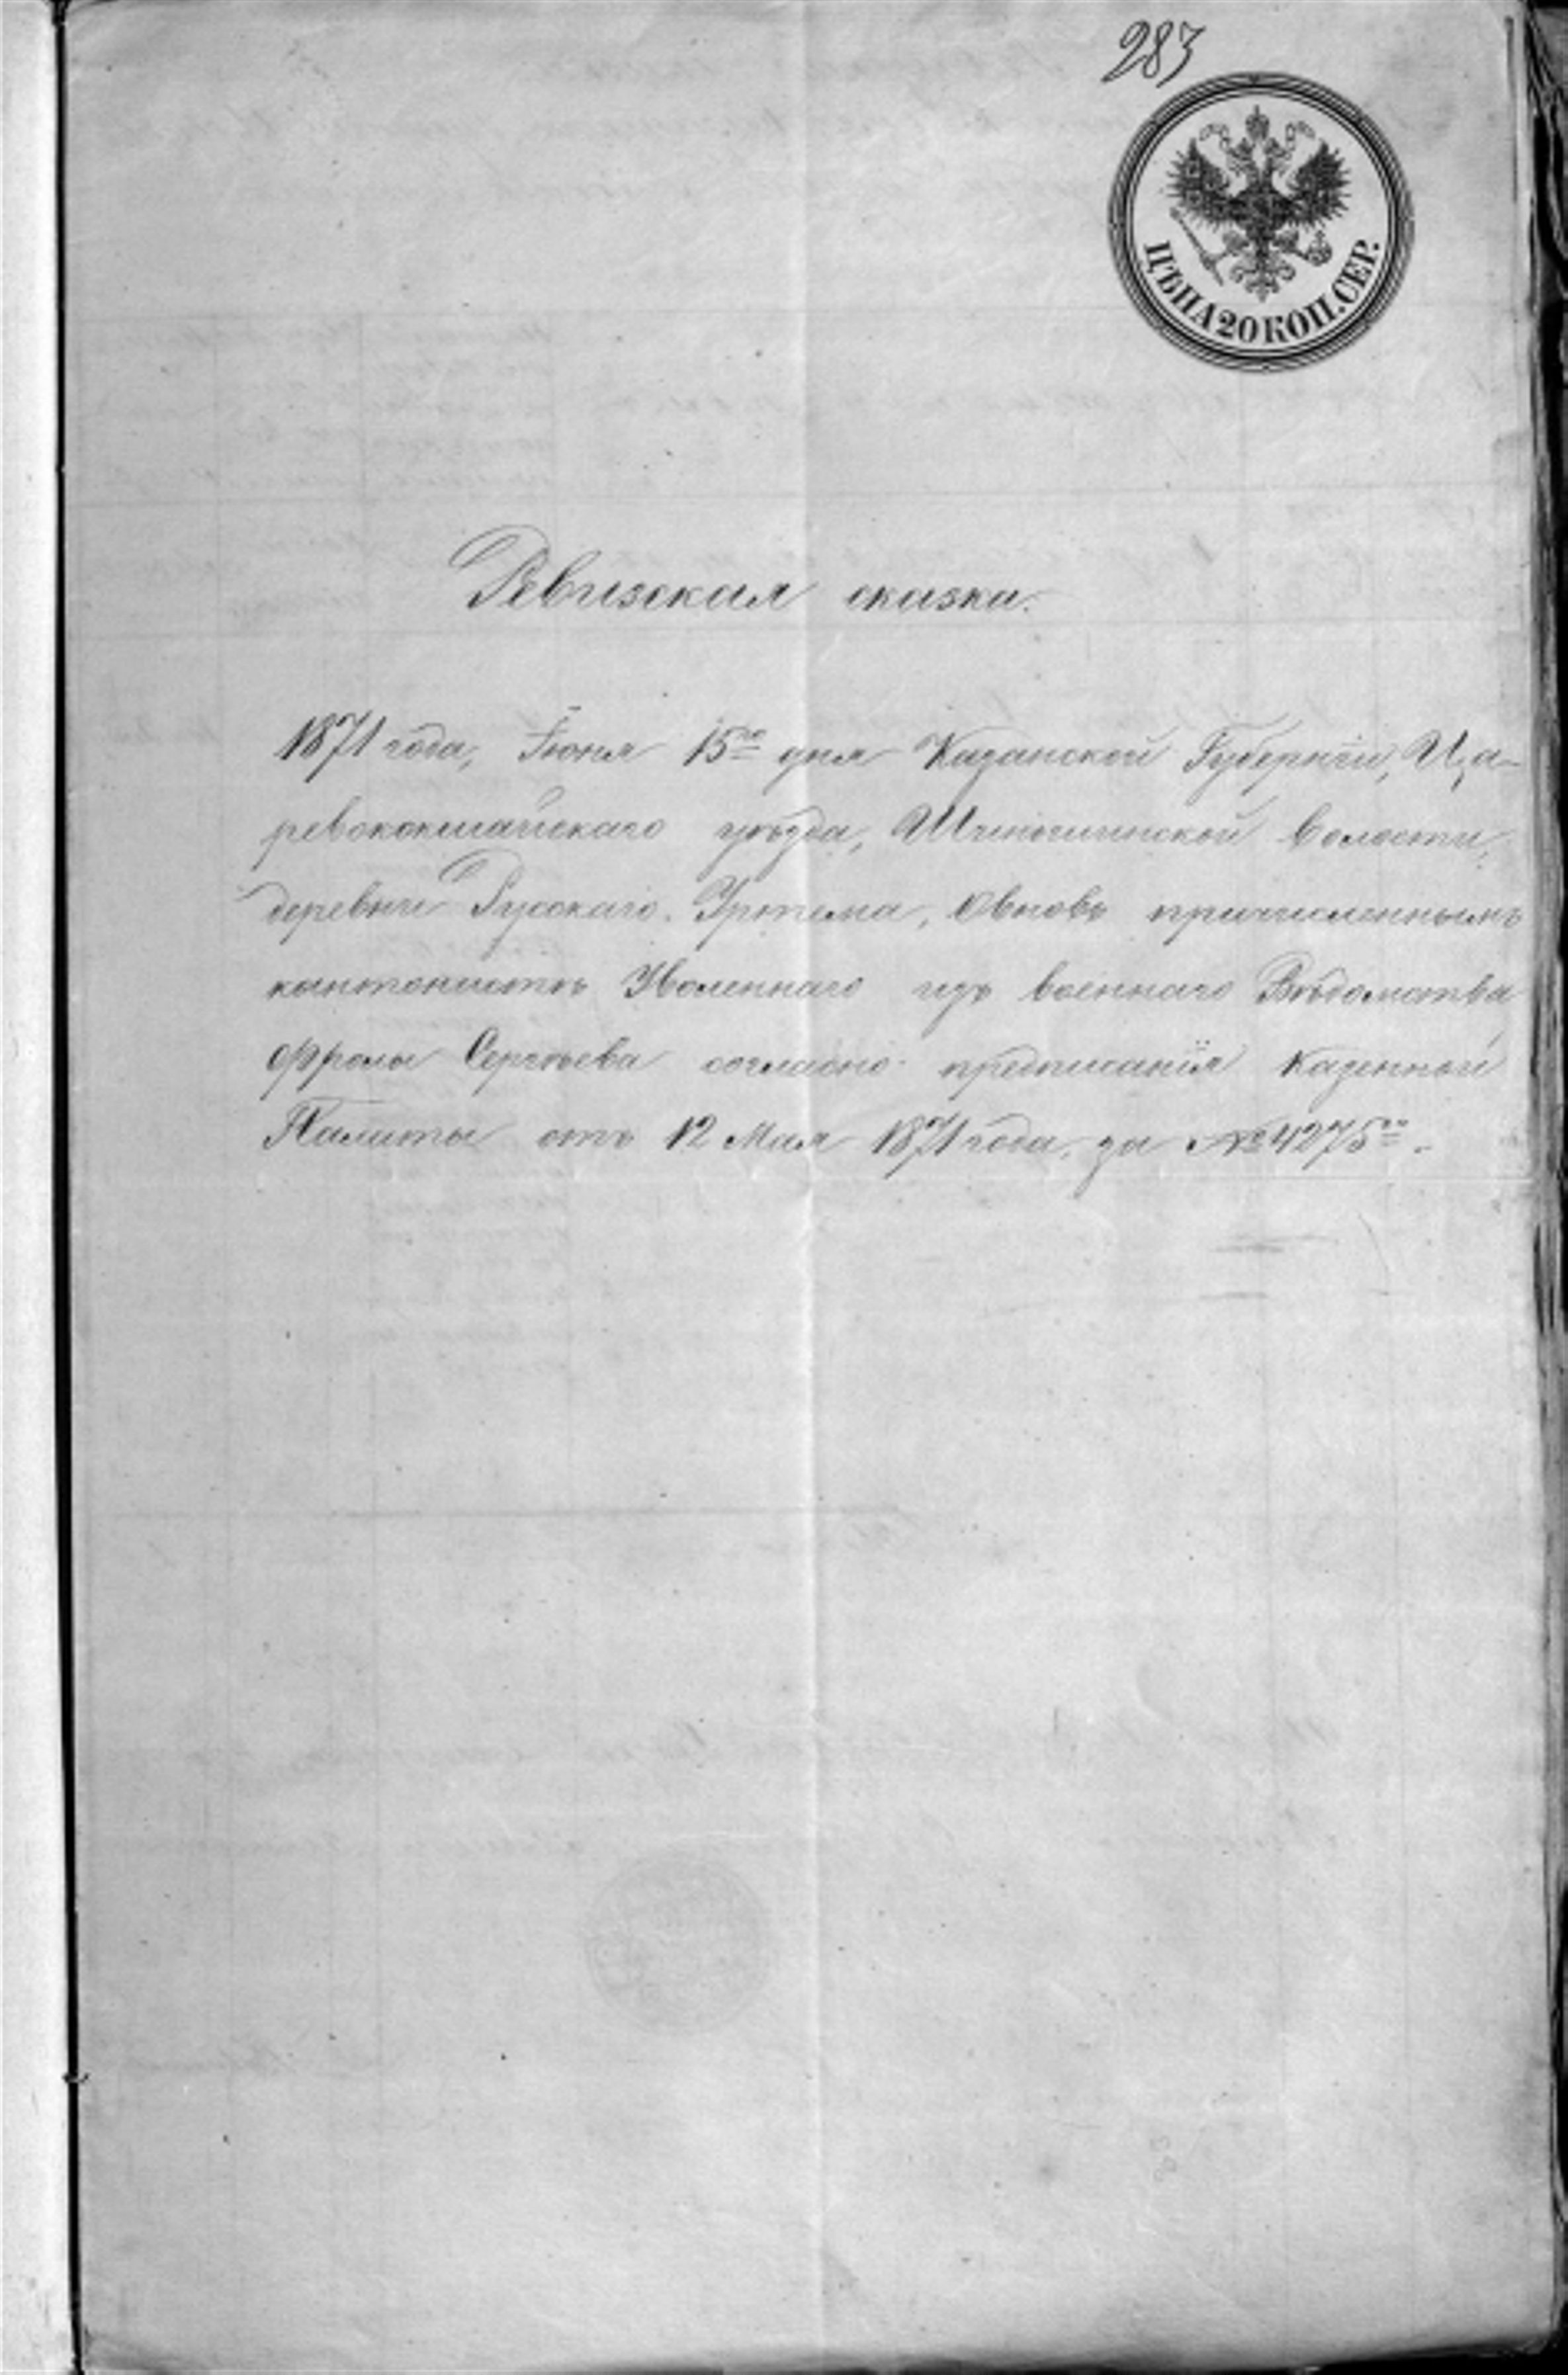 283
ЦѢНА 20 КОП. СЕР.
Ревизская сказка.
1871 года, Іюня 15го дня Казанской Губерніи, Ца-
ревококшайскаго уѣзда, Волости,
деревни Русскаго Уртема, О вновь причисленнымъ
кантонистѣ Уволеннаго изъ военнаго Вѣдомства
Фролы Сергѣева согласно предписанія Казенной
Палаты отъ 12 Мая 1871 года, за № 4275го.